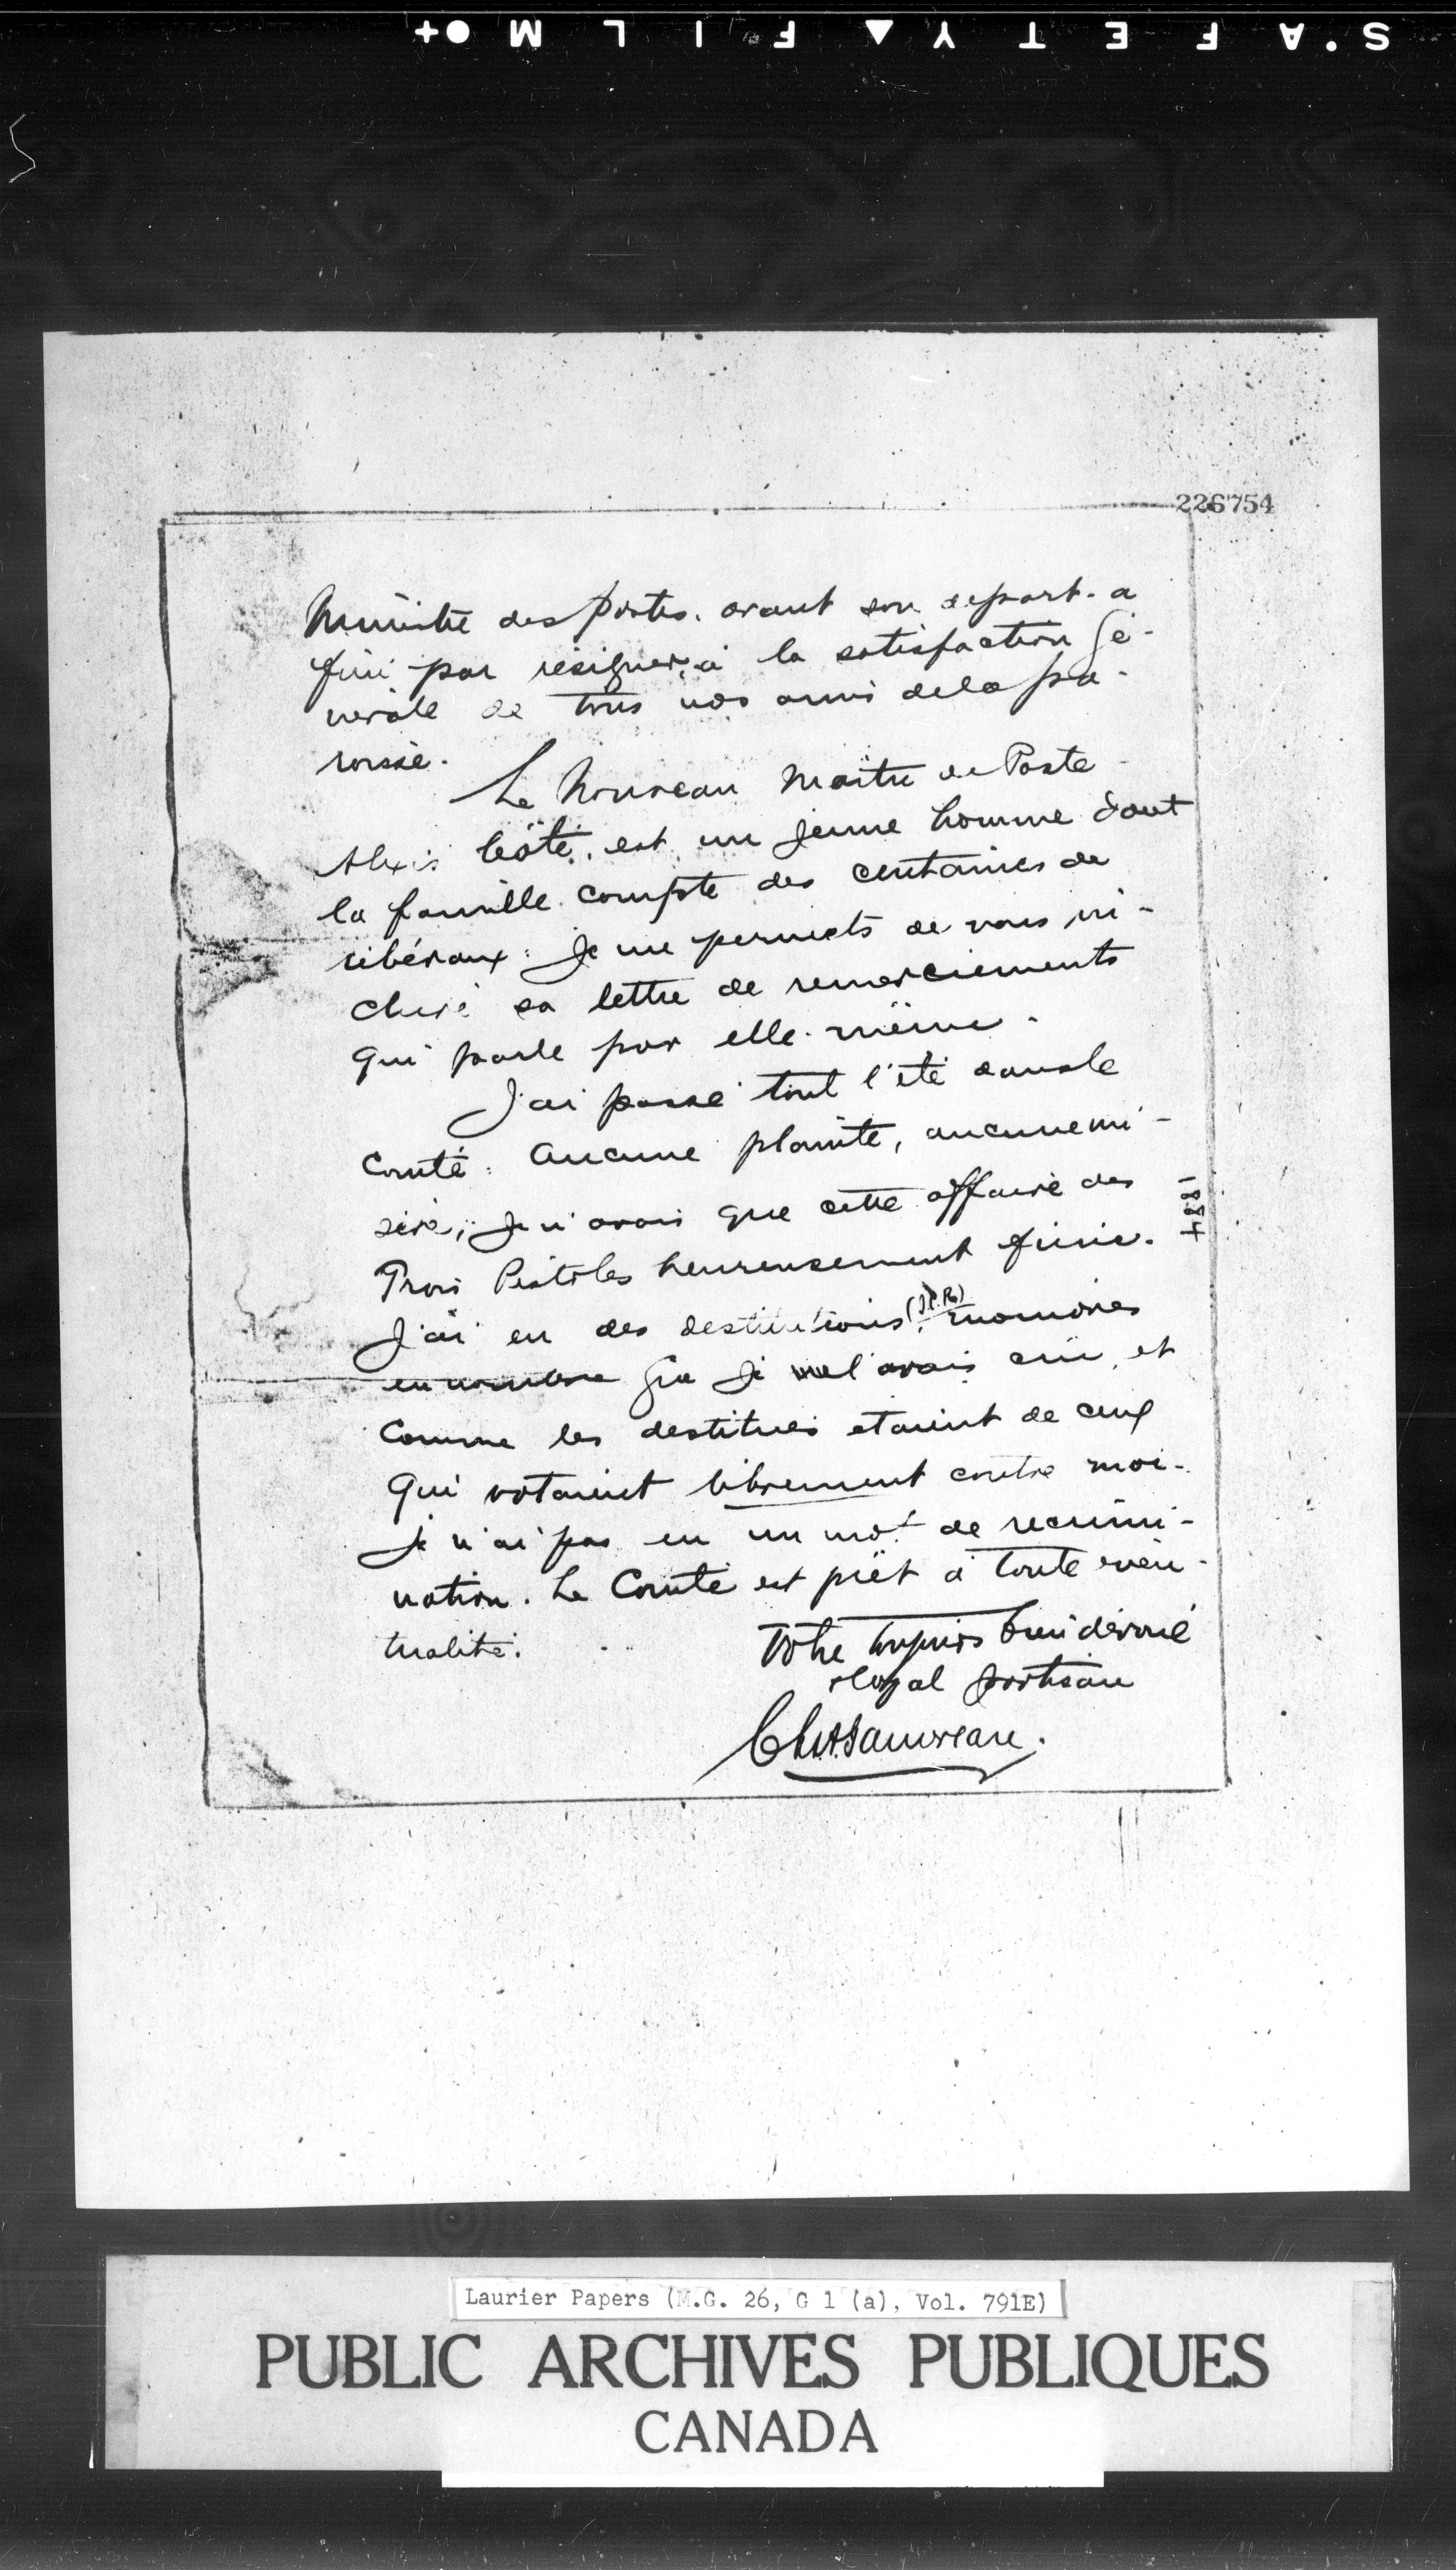 S.AFETY▲FILM●+
226754
Ministre des Postes. avant son départ. a
fini par résigner, à la satisfaction gé-
nérale de tous nos amis de la pa-
roisse.
Le Nouveau Maître de Poste
Alexis Côté, est un jeune homme dont
la famille compte des centaines de
libéraux. Je me permets de vous in-
clure sa lettre de remerciements
qui parle par elle-même.
J'ai passé tout l'été dans le
Comté. Aucune plainte, aucune mi-
sère, je n'avais que cette affaire des
Trois Pistoles heureusement finie.
J'ai eu des destitutions (I.C.R.) moindres
en nombre que je me l'avais cru, et
comme les destitués étaient de ceux
qui votaient librement contre moi-
je n'ai pas eu un mot de récrimi-
nation. Le Comté est prêt à toute éven-
tualité.
Votre toujours bien dévoué
loyal partisan
Ch. A. Gauvreau.
1884
Laurier Papers (M.G. 26, G 1 (a), Vol. 791E)
PUBLIC ARCHIVES PUBLIQUES
CANADA